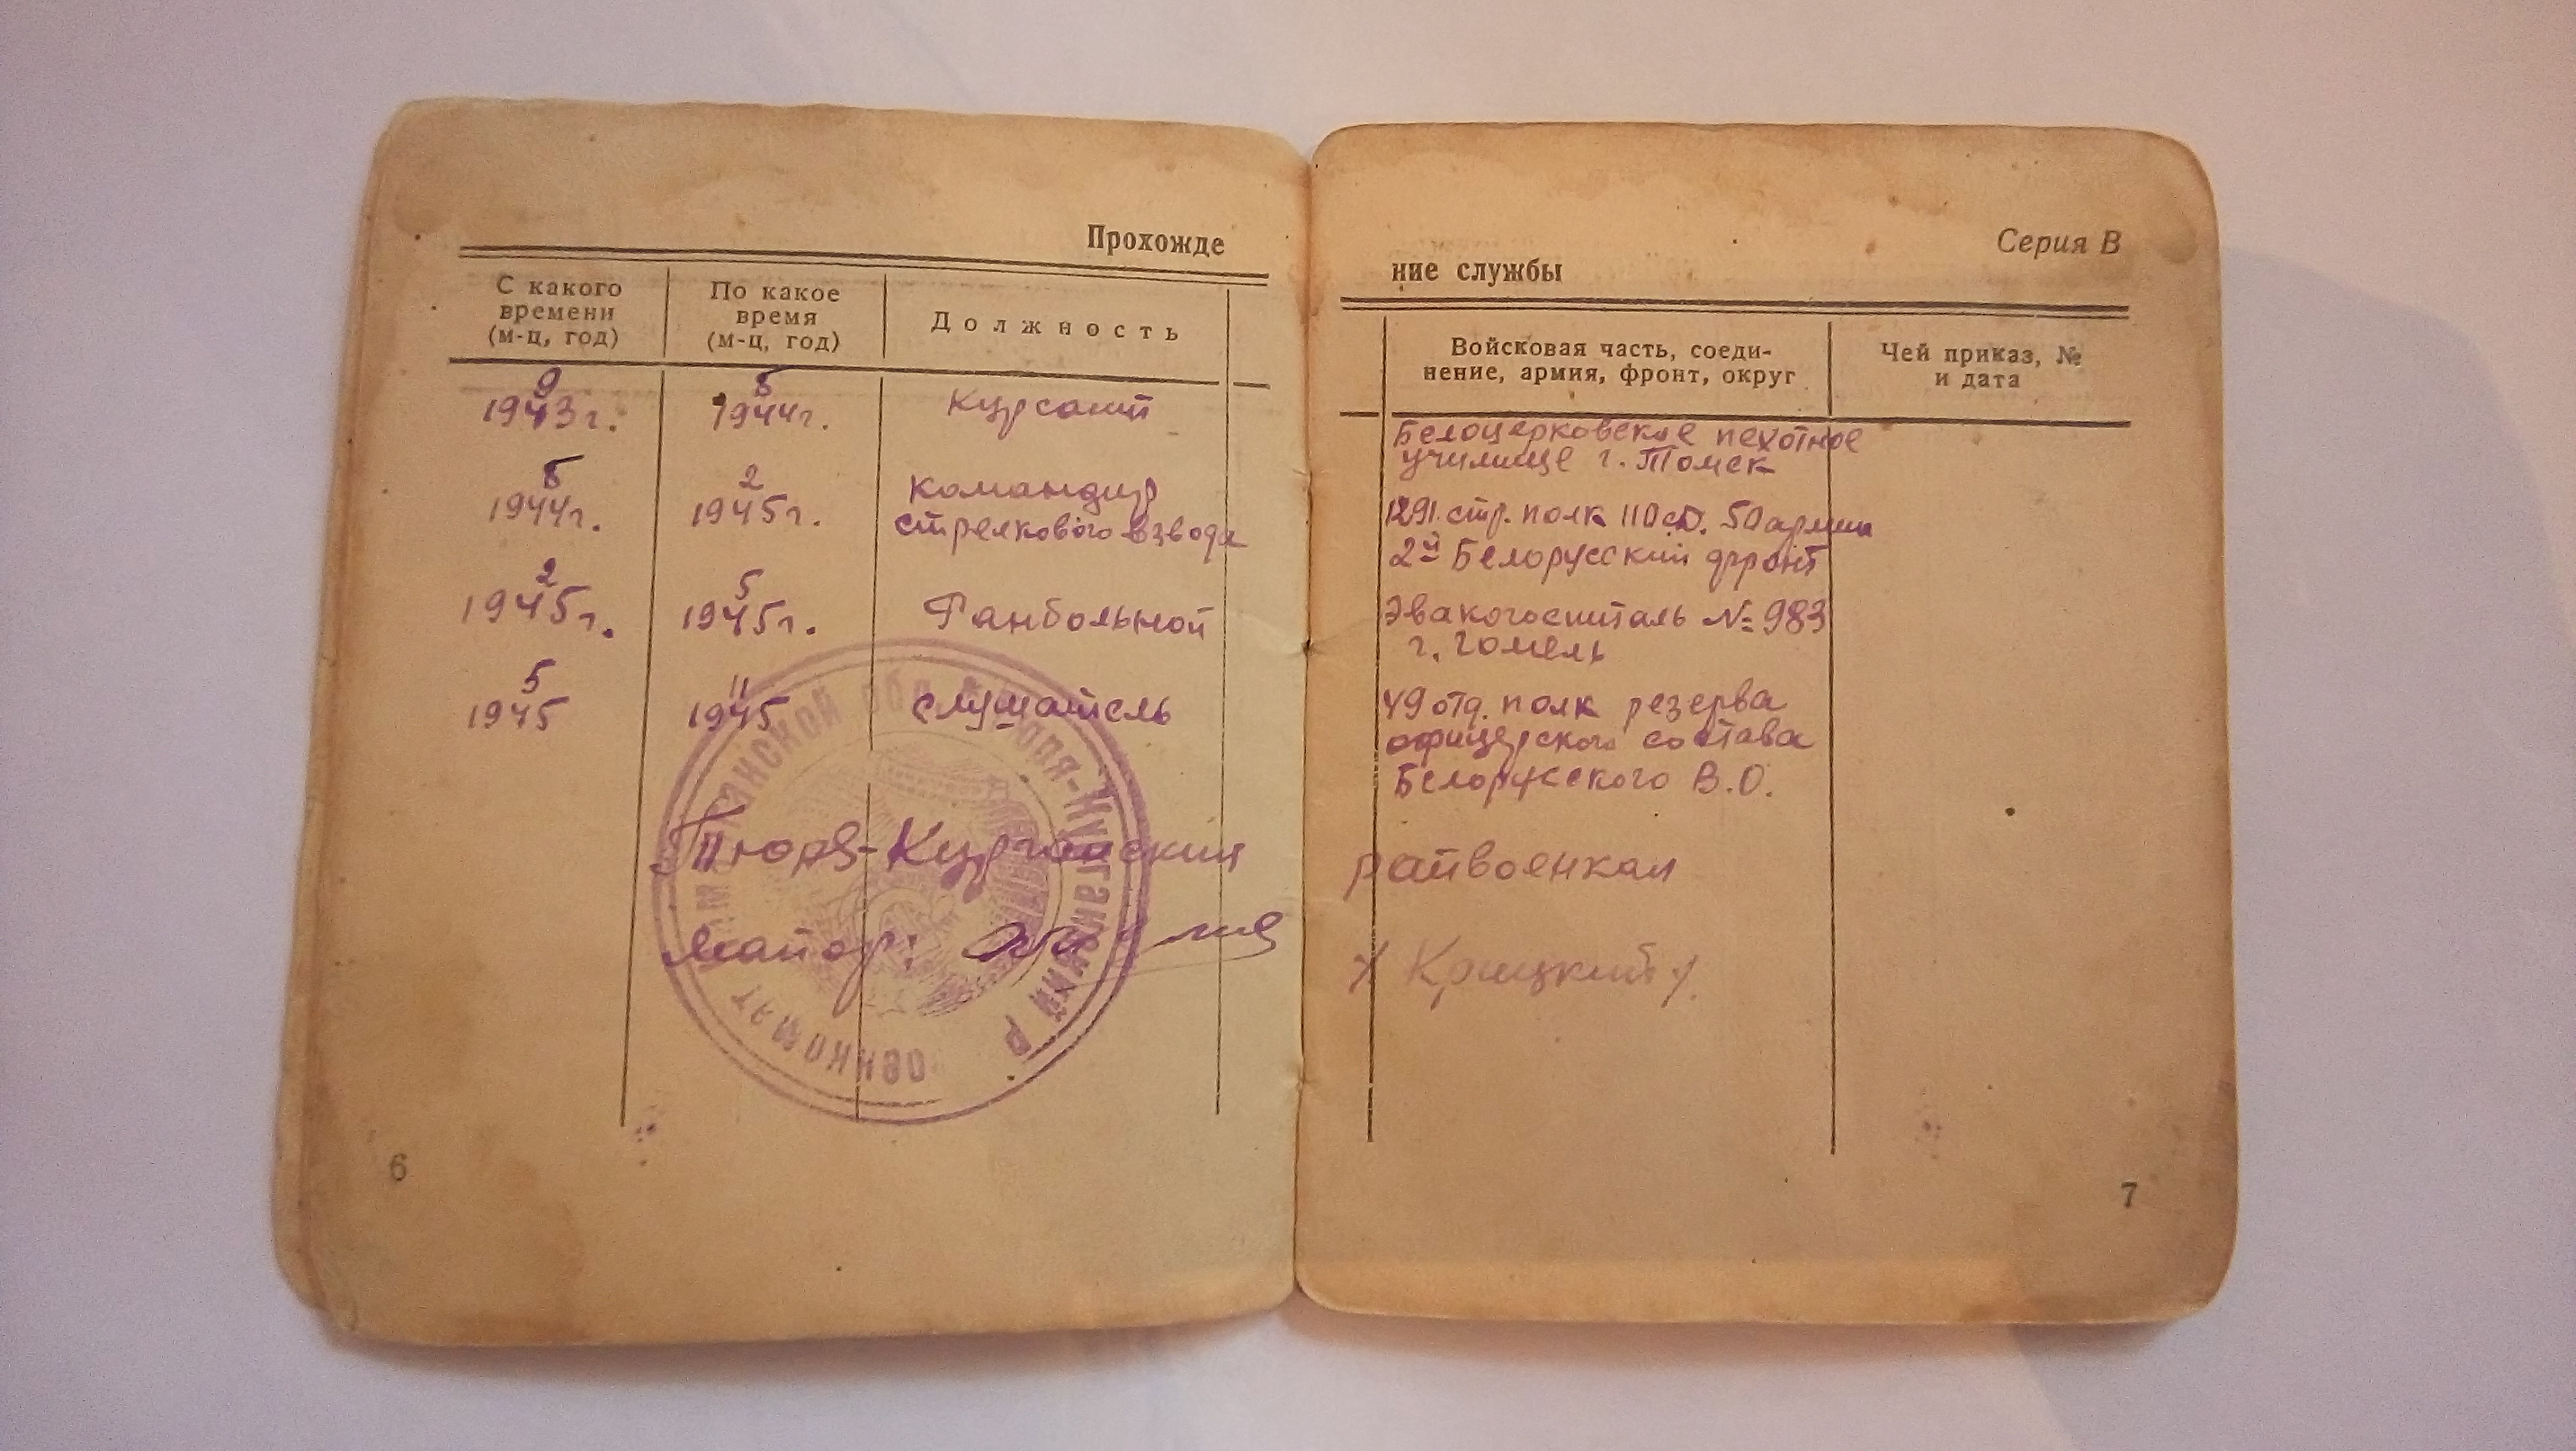 Прохожде
С какого
времени
(м-ц, год)
По какое
время
(м-ц, год)
Должность
9
1943г.
5
1944г.
Курсант
5
1944г.
2
1945г.
командир
стрелкового взвода
2
1945г.
5
1945г.
Ранбольной
5
1945
11
1945
слушатель
Тюря-Курганский
майор:
6
Серия В
ние службы
Войсковая часть, соеди-
нение, армия, фронт, округ
Чей приказ, №
и дата
Белоцерковское пехотное
училище г. Томск
1291 стр. полк 110 сд. 50 армии
2й Белорусский фронт
Эвакогоспиталь № 983
г. Гомель
49 отд. полк резерва
офицерского состава
Белорусского В.О.
райвоенком
/Крицкий/.
7